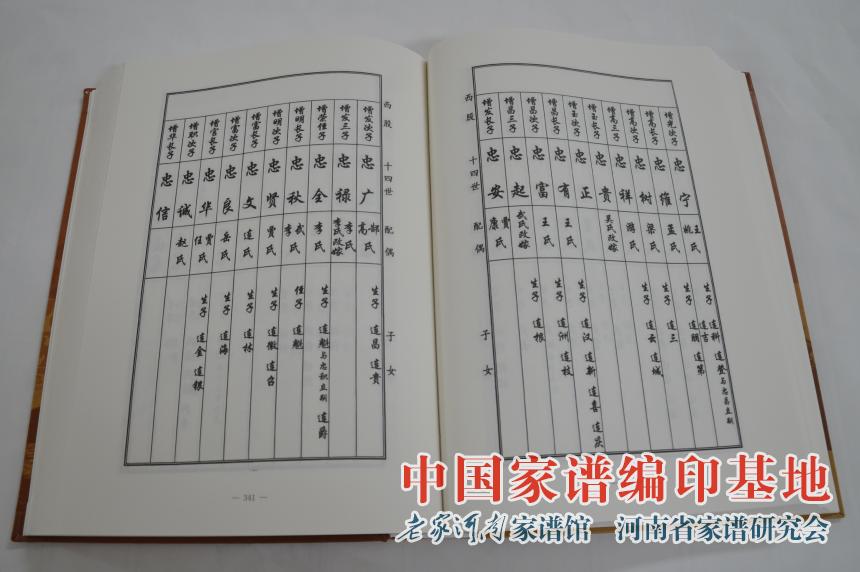 西股 十四世 配偶 子女
增光次子 忠宁 王氏 姚氏 生子 连科 连登与忠易立嗣 连吉
增高长子 忠维 孟氏 生子 连朋 连第
增高次子 忠树 梁氏 生子 连三
增高三子 忠祥 游氏 生子 连云 连城
增玉长子 忠贵 吴氏改嫁
增玉次子 忠正 生子 连汉 连新 连喜 连庆
增昌长子 忠有 王氏 生子 连洲 连枝
增昌次子 忠富 王氏 生子 连根
增昌三子 忠起 武氏改嫁
增发长子 忠安 贾氏 康氏
西股 十四世 配偶 子女
增发次子 忠广 郜氏 高氏 生子 连昌 连贵
增发三子 忠禄 李氏 李氏改嫁
增荣任子 忠全 李氏 生子 连魁与忠秋立嗣 连爵
增明长子 忠秋 武氏 李氏 任子 连魁
增明次子 忠贤 贾氏 生子 连徵 连台
增富长子 忠文 连氏 生子 连林
增富次子 忠良 岳氏 生子 连海
增官长子 忠华 贾氏 任氏 生子 连金 连银
增职次子 忠诚 赵氏
增华长子 忠信
— 341 —
中国家谱编印基地
老家河南家谱馆 河南省家谱研究会